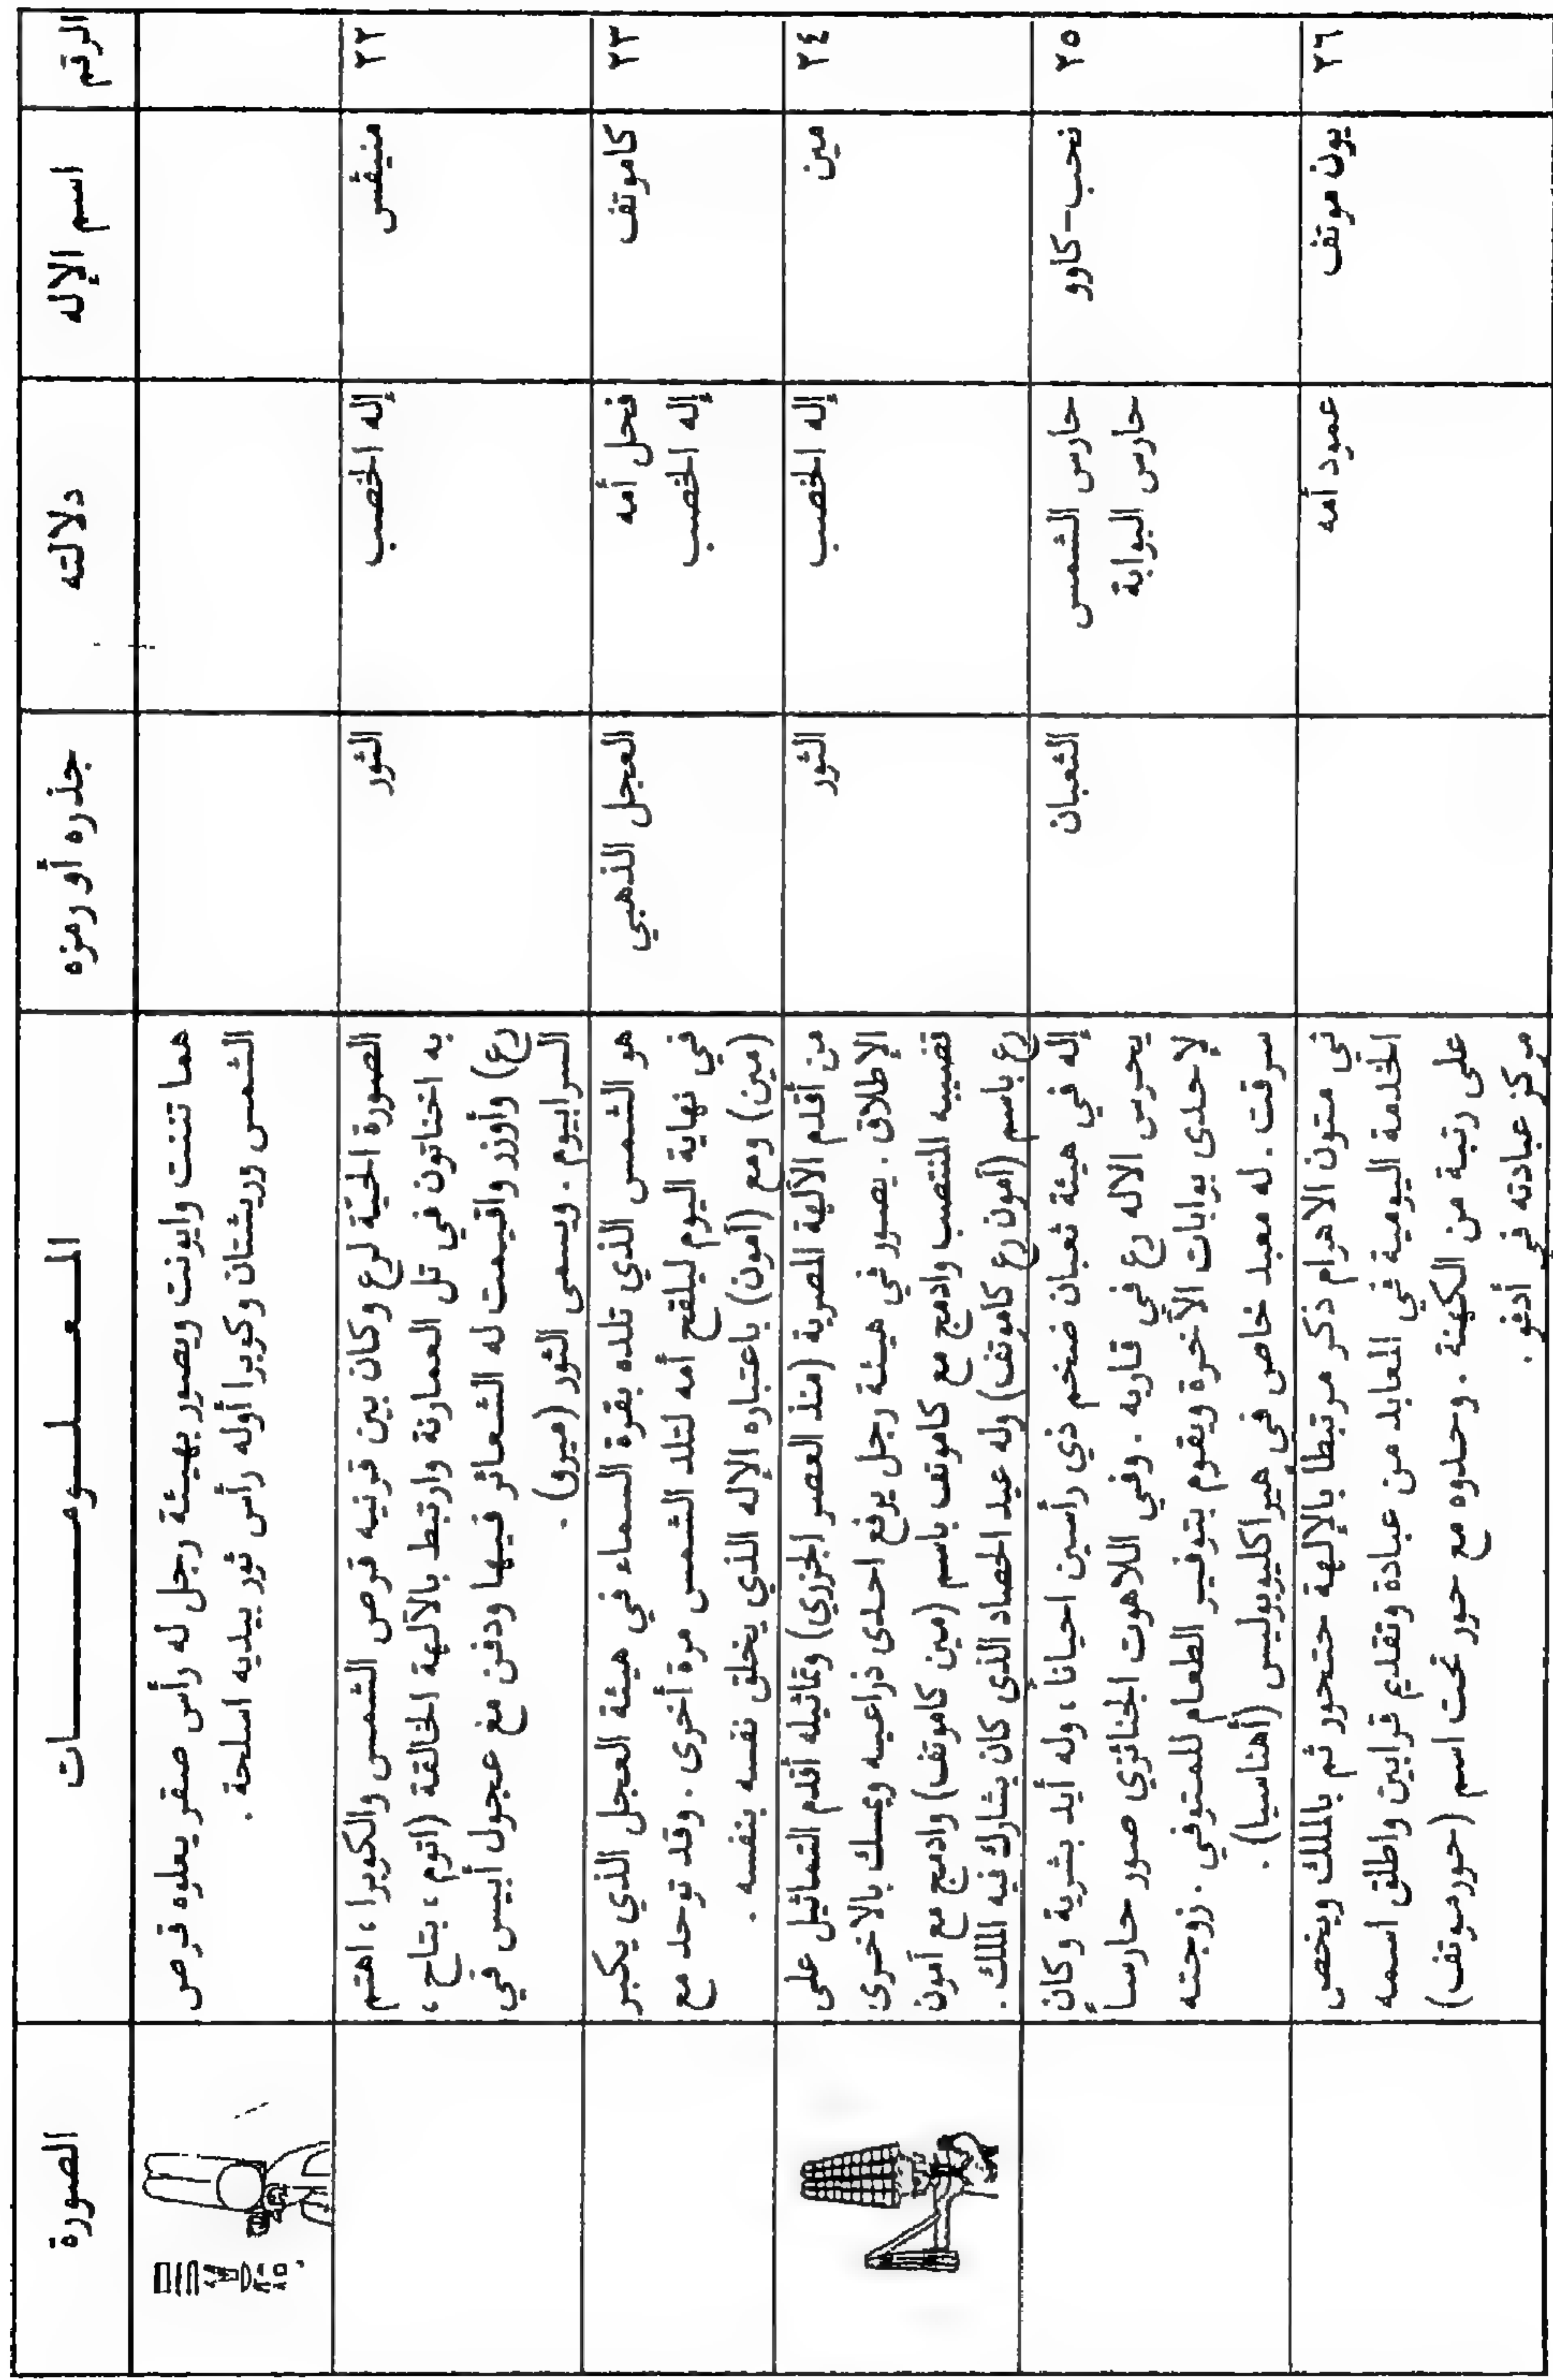 الرقم
اسم الإله
دلالته
جذره أو رمزه
المعـلـومـــات
الصورة
هما تننت وايونت ويصور بهيئة رجل له رأس صقر يعلوه قرص
الشمس وريشتان وكوبرا أوله رأس ثور بيديه اسلحة .
٢٢
منيفس
إله الخصب
الثور
الصورة الحيّة لرع وكان بين قرنيه قرص الشمس والكوبرا ، اهتم
به اخناتون في تل العمارنة وارتبط بالآلهة الخالقة (اتوم ، بتاح ،
رع) وأوزر واقيمت له الشعائر فيها ودفن مع عجول أبيس في
السرابيوم . ويسمى الثور (ميرق) .
٢٣
كاموتف
فحل أمه
إله الخصب
العجل الذهبي
هو الشمس الذي تلده بقرة السماء في هيئة العجل الذي يكبر
في نهاية اليوم ليلقح أمه لتلد الشمس مرة أخرى . وقد توحد مع
(مين) ومع (آمون) باعتباره الإله الذي يخلق نفسه بنفسه .
٢٤
مين
إله الخصب
الثور
من أقدم الآلهة المصرية (منذ العصر الجزري) وتماثيله أقدم التماثيل على
الإطلاق . يصور في هيئة رجل يرفع احدى ذراعيه ويمسك بالاخرى
قضيبه المنتصب وادمج مع كاموتف باسم (مين كاموتف) وادمج مع آمون
رع باسم (آمون رع كاموتف) وله عيد الحصاد الذي كان يشارك فيه الملك .
٢٥
نحب-كاوو
حارس الشمس
حارس البوابة
الثعبان
إله في هيئة ثعبان ضخم ذي رأسين احياناً ، وله أيد بشرية وكان
يحرس الاله رع في قاربه . وفي اللاهوت الجنائزي صور حارساً
لإحدى بوابات الآخرة ويقوم بتوفير الطعام للمتوفي . زوجته
سرقت . له معبد خاص في هيراكليوبوليس (أهناسيا) .
٢٦
يون موتف
عمود أمه
في متون الاهرام ذكر مرتبطا بالإلهة حتحور ثم بالملك ويخص
الخدمة اليومية في المعابد من عبادة وتقديم قرابين واطلق اسمه
على رتبة من الكهنة . وحدوه مع حور تحت اسم (حورموتف)
مركز عبادته في أدفو .